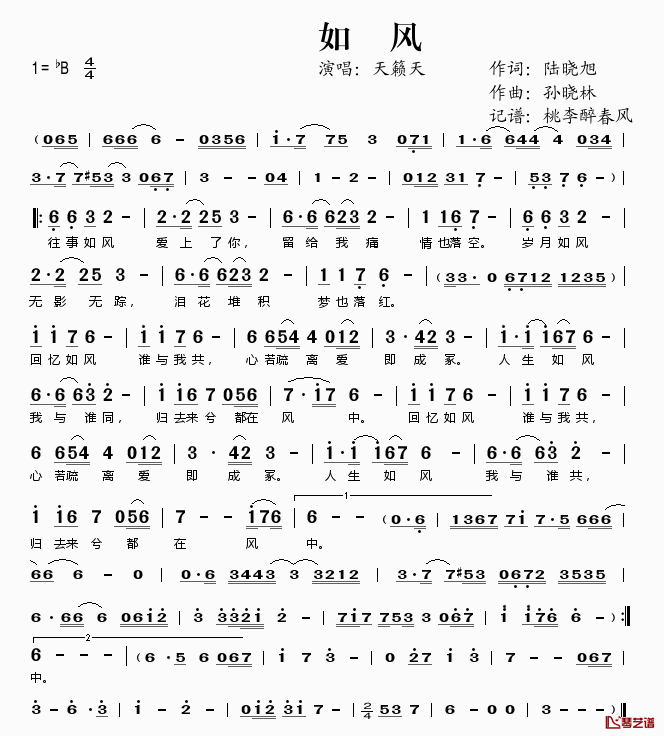 如 风
1=♭B 4/4 演唱：天籁天 作词：陆晓旭
作曲：孙晓林
记谱：桃李醉春风
( 065 | 666 6 - 0356 | i·7 75 3 071 | 1·6 644 4 034 |
3·7 7#53 3 067 | 3 - - 04 | 1 - 2 - | 012 31 7 - | 53 7 6 - ) |
‖: 6 6 3 2 - | 2·2 25 3 - | 6·6 623 2 - | 1 16 7 - | 6 6 3 2 - |
往事如风 爱上了你， 留给我痛 情也落空。 岁月如风
2·2 25 3 - | 6·6 623 2 - | 1 1 7 6 - | ( 33· 0 6712 1235 ) |
无影无踪， 泪花堆积 梦也落红。
i i 7 6 - | i i 7 6 - | 6 654 4 012 | 3 · 42 3 - | i·i i67 6 - |
回忆如风 谁与我共， 心若疏离爱 即成冢。 人生如风
6·6 63 2 - | i i6 7 056 | 7·i7 6 - | i i 7 6 - | i i 7 6 - |
我与谁同， 归去来兮都在 风中。 回忆如风 谁与我共，
6 654 4 012 | 3 · 42 3 - | i·i i67 6 - | 6·6 63 2 - |
心若疏离爱 即成冢。 人生如风 我与谁共，
i i6 7 056 | 7 - - i76 | 1 6 - - ( 0·6 | 1367 7i 7·5 666 |
归去来兮都 在风 中。
66 6 - 0 | 0·6 3443 3 3212 | 3·7 7#53 0672 3535 |
6·66 6 06i2 | 3 332i 2 - | 7i7 753 3 067 | i i76 6 - ) :‖
2 6 - - ( 6·5 6 067 | i 7 3 - | 2 6 7 - | 3 5 067 i |
中。
3 - 6 3 | 2 - - 0 | 0i2 3i 7 - | 2/4 53 7 | 6 - 00 | 3 - - - ) ‖
琴艺谱